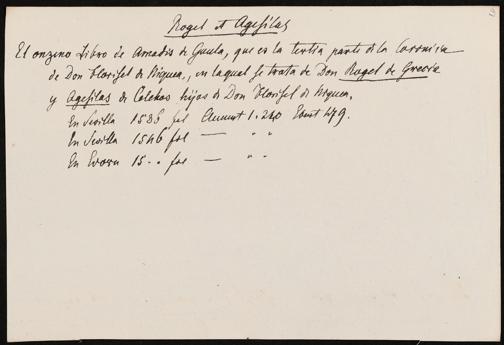 Rogel et Agesilas
El onzeno Libro de Amadis de Gaula, que es la tertia parte de la Coronica
de Don Florisel de Niquea, en laqual se trata de Don Rogel de Grecia
y Agesilas de Colchos hijos de Don Florisel de Niquea.
En Sevilla 1536 fol 1.240 479.
En Sevilla 1546 fol — " "
En Evora 15.. fol — " "